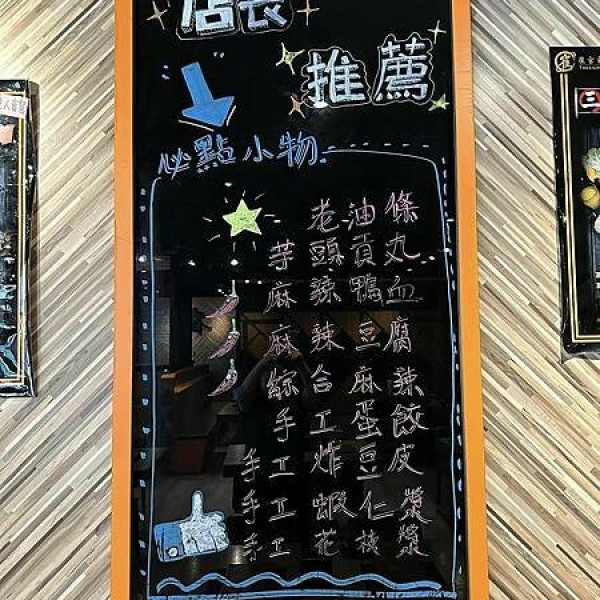 店長
推薦
必點小物
老油條
芋頭貢丸
麻辣鴨血
麻辣豆腐
綜合麻辣
手工蛋餃
手工炸豆皮
手工蝦仁漿
手工花枝漿
三